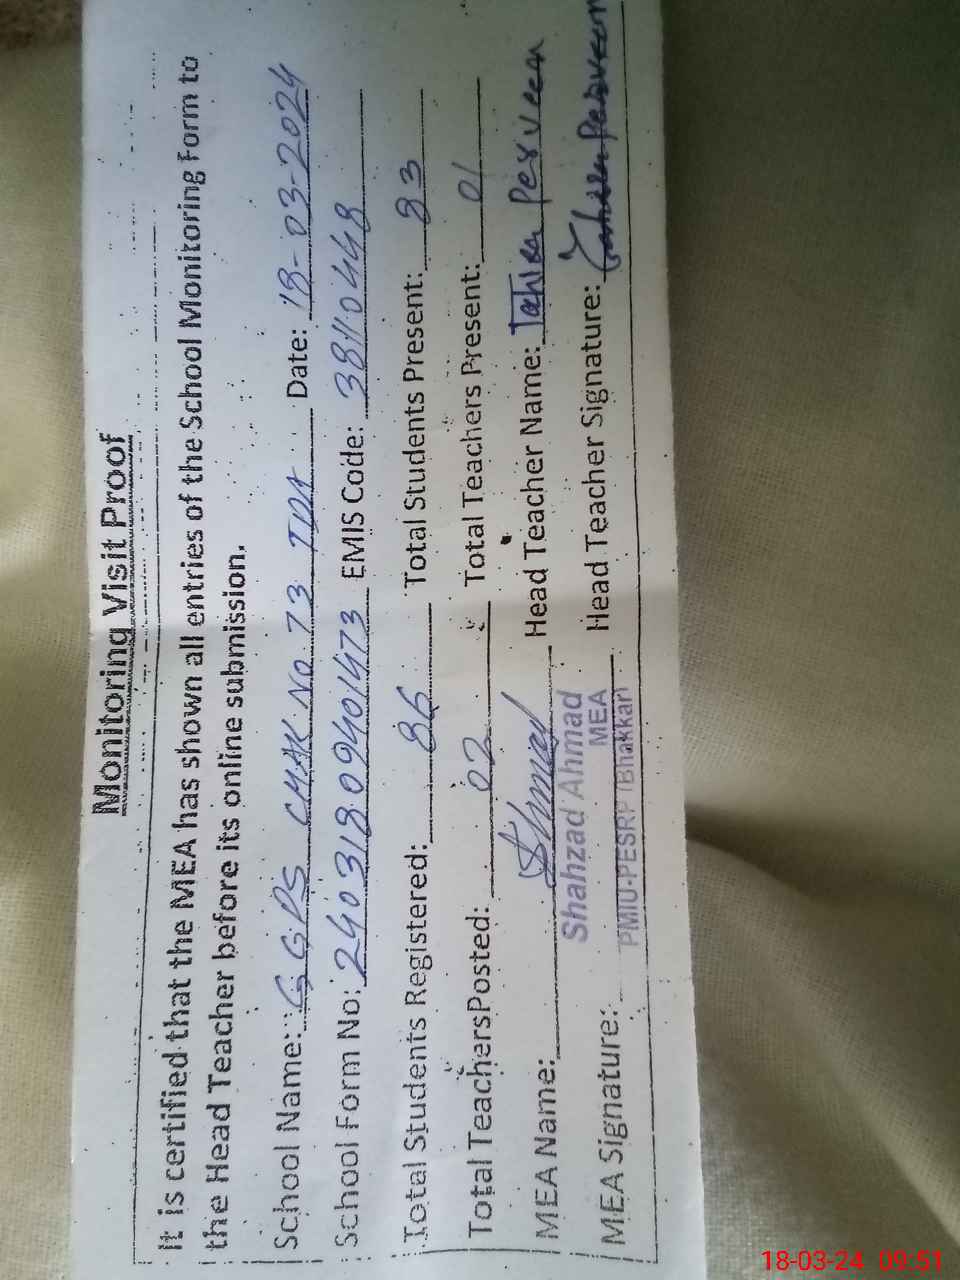 Monitoring Visit Proof
It is certified that the MEA has shown all entries of the School Monitoring Form to
the Head Teacher before its online submission.
School Name: GGPS CHAK No 73 TDA Date: 18-03-2024
School Form No: 24031809401473 EMIS Code: 38110448
Total Students Registered: 86 Total Students Present: 83
Total TeachersPosted: 02 Total Teachers Present: 01
MEA Name: Head Teacher Name: Perveen
Shahzad Ahmad
MEA
MEA Signature: Head Teacher Signature:
PMIU-PESRP (Bhakkar)
18-03-24 09:51